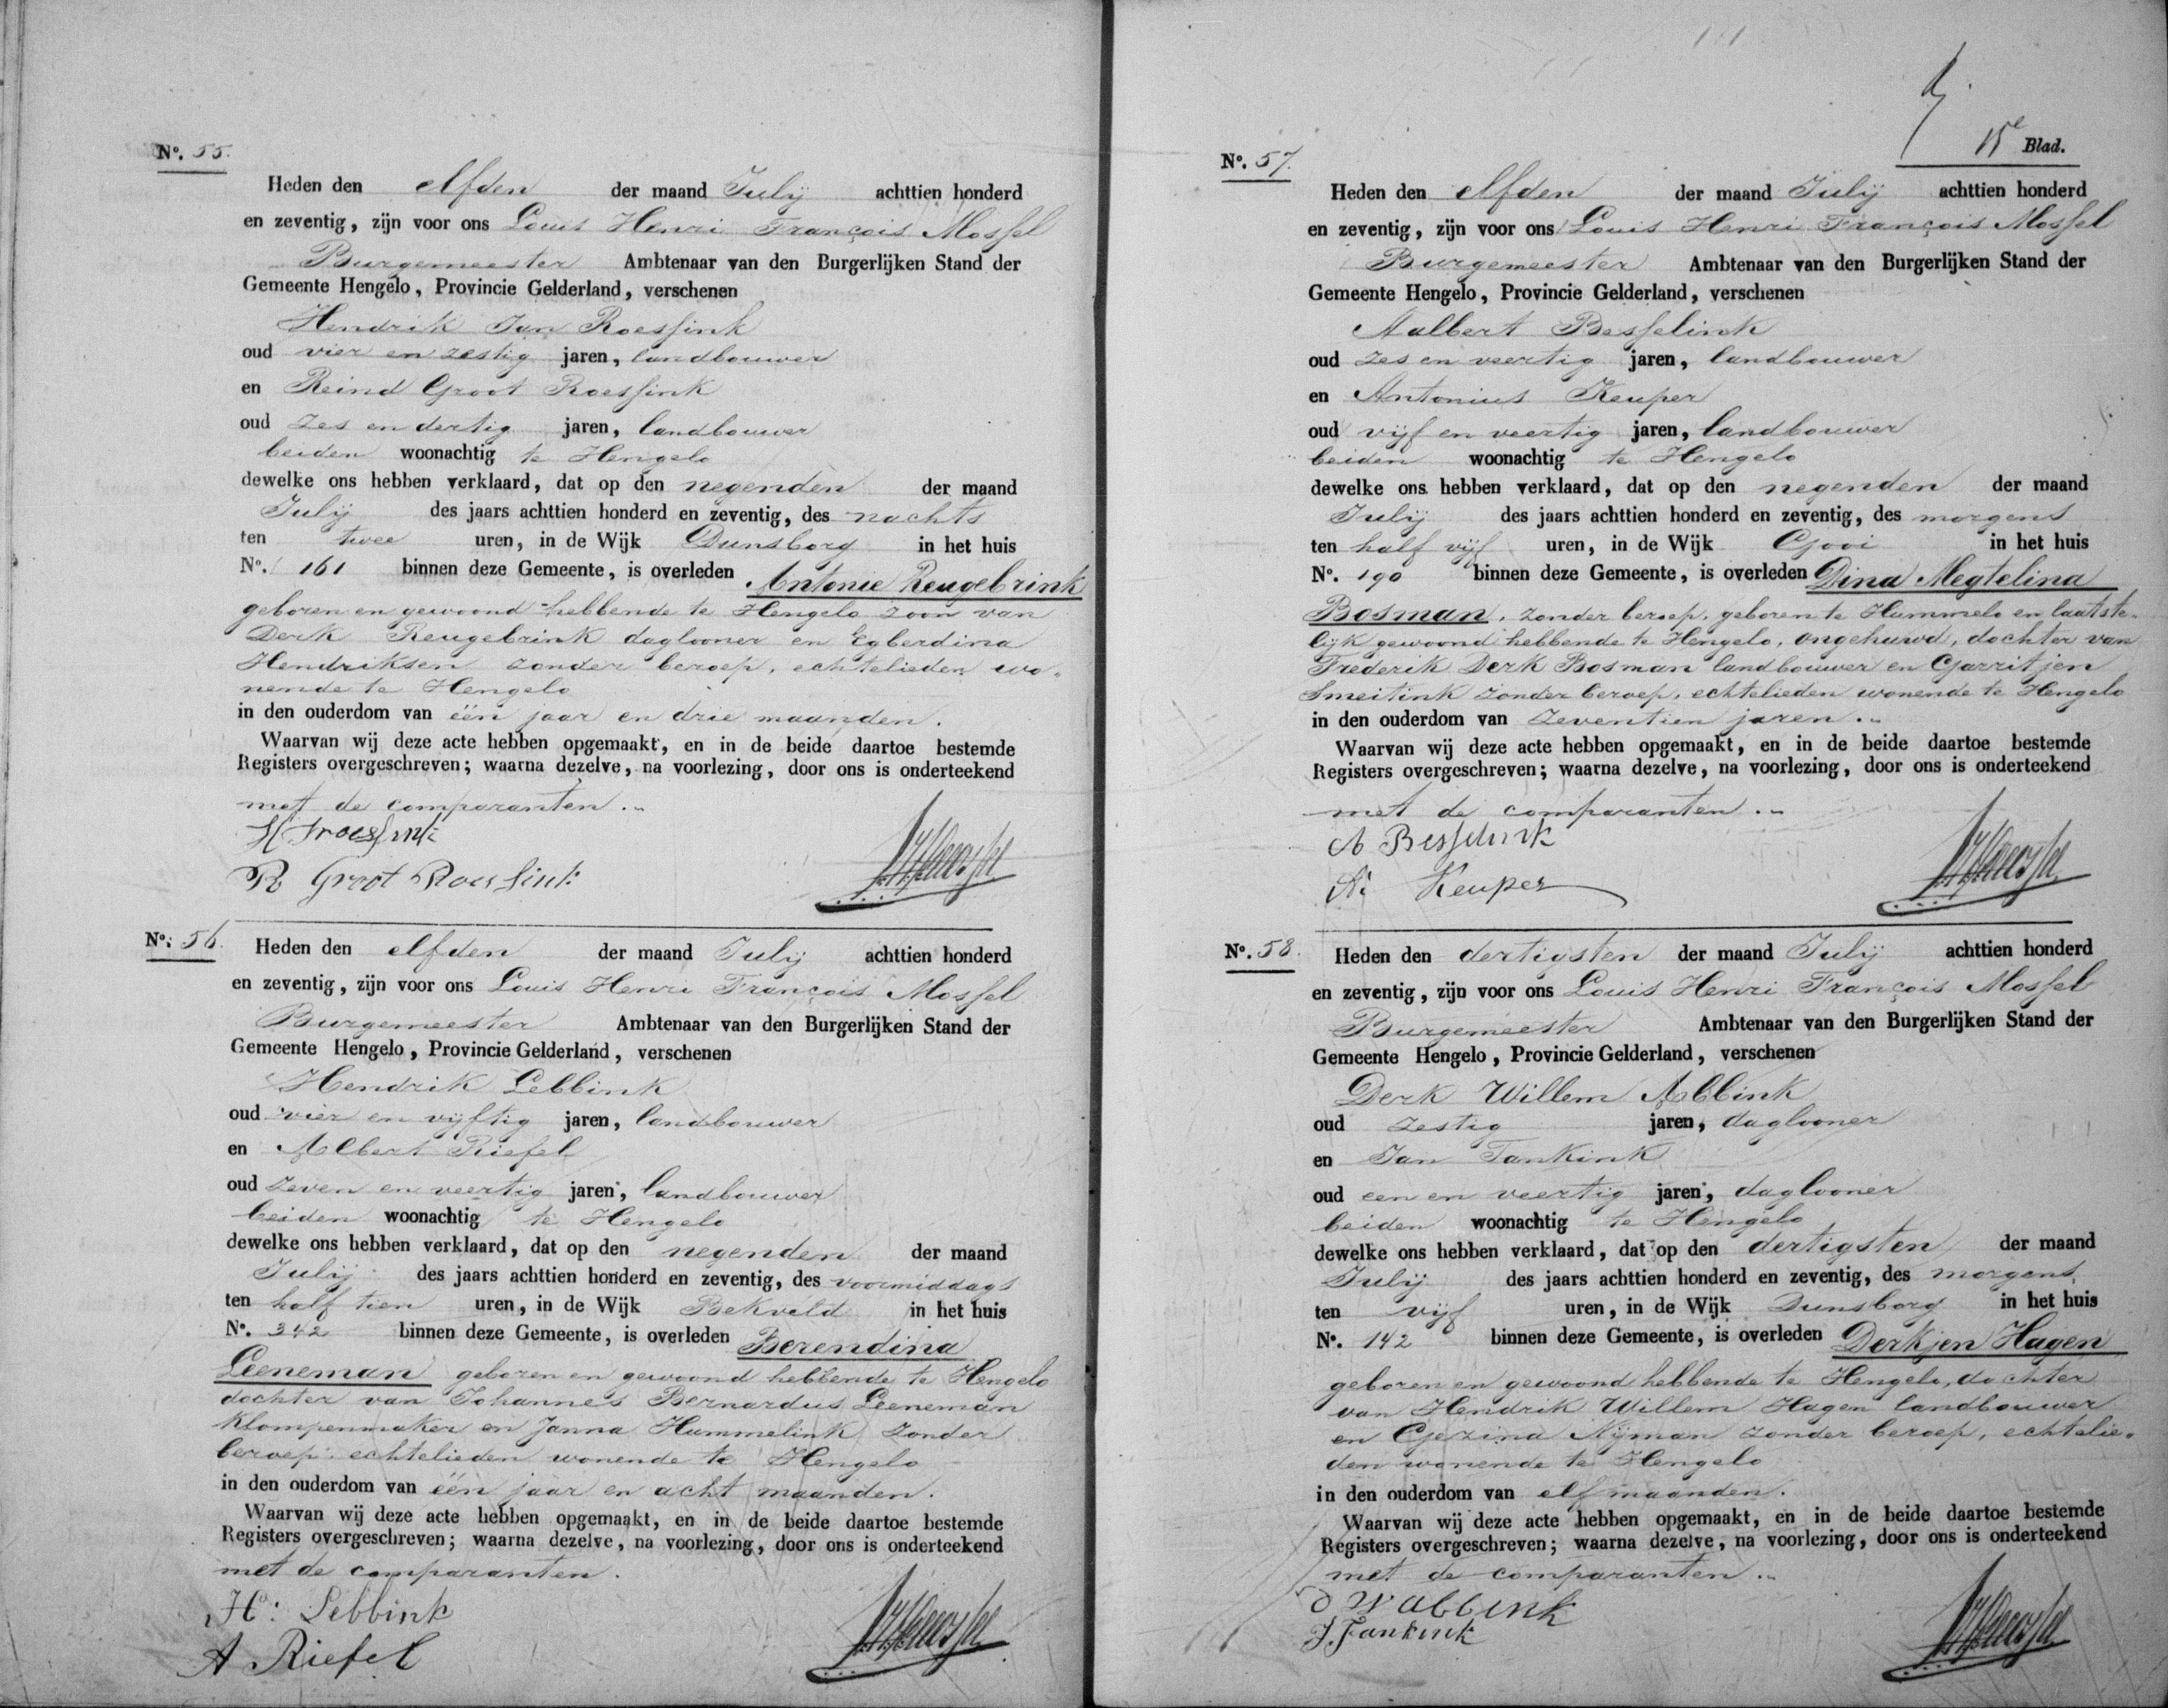 No. 55.
Heden den elfden der maand Julij achttien honderd
en zeventig, zijn voor ons Louis Henri François Mossel
Burgemeester Ambtenaar van den Burgerlijken Stand der
Gemeente Hengelo, Provincie Gelderland, verschenen
Hendrik Jan Roessink
oud vier en zestig jaren, landbouwer
en Reind Groot Roessink
oud zes en dertig jaren, landbouwer
beiden woonachtig te Hengelo
dewelke ons hebben verklaard, dat op den negenden der maand
Julij des jaars achttien honderd en zeventig, des nachts
ten twee uren, in de Wijk Dunsborg in het huis
No. 161 binnen deze Gemeente, is overleden Antonie Reugebrink
geboren en gewoond hebbende te Hengelo zoon van
Derk Reugebrink daglooner en Egberdina
Hendriksen zonder beroep, echtelieden wo-
nende te Hengelo
in den ouderdom van één jaar en drie maanden.
Waarvan wij deze acte hebben opgemaakt, en in de beide daartoe bestemde
Registers overgeschreven; waarna dezelve, na voorlezing, door ons is onderteekend
met de comparanten.
R Groot Roessink
No. 56.
Heden den elfden der maand Julij achttien honderd
en zeventig, zijn voor ons Louis Henri François Mossel
Burgemeester Ambtenaar van den Burgerlijken Stand der
Gemeente Hengelo, Provincie Gelderland, verschenen
Hendrik Lebbink
oud vier en vijftig jaren, landbouwer
en Albert Riefel
oud zeven en veertig jaren, landbouwer
beiden woonachtig te Hengelo
dewelke ons hebben verklaard, dat op den negenden der maand
Julij des jaars achttien honderd en zeventig, des voormiddags
ten half tien uren, in de Wijk Bekveld in het huis
No. 342 binnen deze Gemeente, is overleden Berendina
Leeneman geboren en gewoond hebbende te Hengelo
dochter van Johannes Bernardus Leeneman
klompenmaker en Janna Hummelink zonder
beroep. echtelieden wonende te Hengelo
in den ouderdom van één jaar en acht maanden.
Waarvan wij deze acte hebben opgemaakt, en in de beide daartoe bestemde
Registers overgeschreven; waarna dezelve, na voorlezing, door ons is onderteekend
met de comparanten.
H: Lebbink
A Riefel
15e Blad.
No. 57.
Heden den elfden der maand Julij achttien honderd
en zeventig, zijn voor ons Louis Henri François Mossel
Burgemeester Ambtenaar van den Burgerlijken Stand der
Gemeente Hengelo, Provincie Gelderland, verschenen
Aalbert Besselink
oud zes en veertig jaren, landbouwer
en Antonius Keuper
oud vijf en veertig jaren, landbouwer
beiden woonachtig te Hengelo
dewelke ons hebben verklaard, dat op den negenden der maand
Julij des jaars achttien honderd en zeventig, des morgens
ten half vijf uren, in de Wijk Gooi in het huis
No. 190 binnen deze Gemeente, is overleden Dina Megtelina
Bosman, zonder beroep, geboren te Hummelo en laatste-
lijk gewoond hebbende te Hengelo, ongehuwd, dochter van
Frederik Derk Bosman landbouwer en Garritjen
Smeitink zonder beroep, echtelieden wonende te Hengelo
in den ouderdom van zeventien jaren.
Waarvan wij deze acte hebben opgemaakt, en in de beide daartoe bestemde
Registers overgeschreven; waarna dezelve, na voorlezing, door ons is onderteekend
met de comparanten.
A Besselink
A: Keuper
No. 58.
Heden den dertigsten der maand Julij achttien honderd
en zeventig, zijn voor ons Louis Henri François Mossel
Burgemeester Ambtenaar van den Burgerlijken Stand der
Gemeente Hengelo, Provincie Gelderland, verschenen
Derk Willem Abbink
oud zestig jaren, daglooner
en Jan Tankink
oud een en veertig jaren, daglooner
beiden woonachtig te Hengelo
dewelke ons hebben verklaard, dat op den dertigsten der maand
Julij des jaars achttien honderd en zeventig, des morgens
ten vijf uren, in de Wijk Dunsborg in het huis
No. 142 binnen deze Gemeente, is overleden Derkjen Hagen
geboren en gewoond hebbende te Hengelo, dochter
van Hendrik Willem Hagen landbouwer
en Gezina Nijman zonder beroep, echtelie-
den wonende te Hengelo
in den ouderdom van elf maanden.
Waarvan wij deze acte hebben opgemaakt, en in de beide daartoe bestemde
Registers overgeschreven; waarna dezelve, na voorlezing, door ons is onderteekend
met de comparanten.
D W abbink
J. Tankink